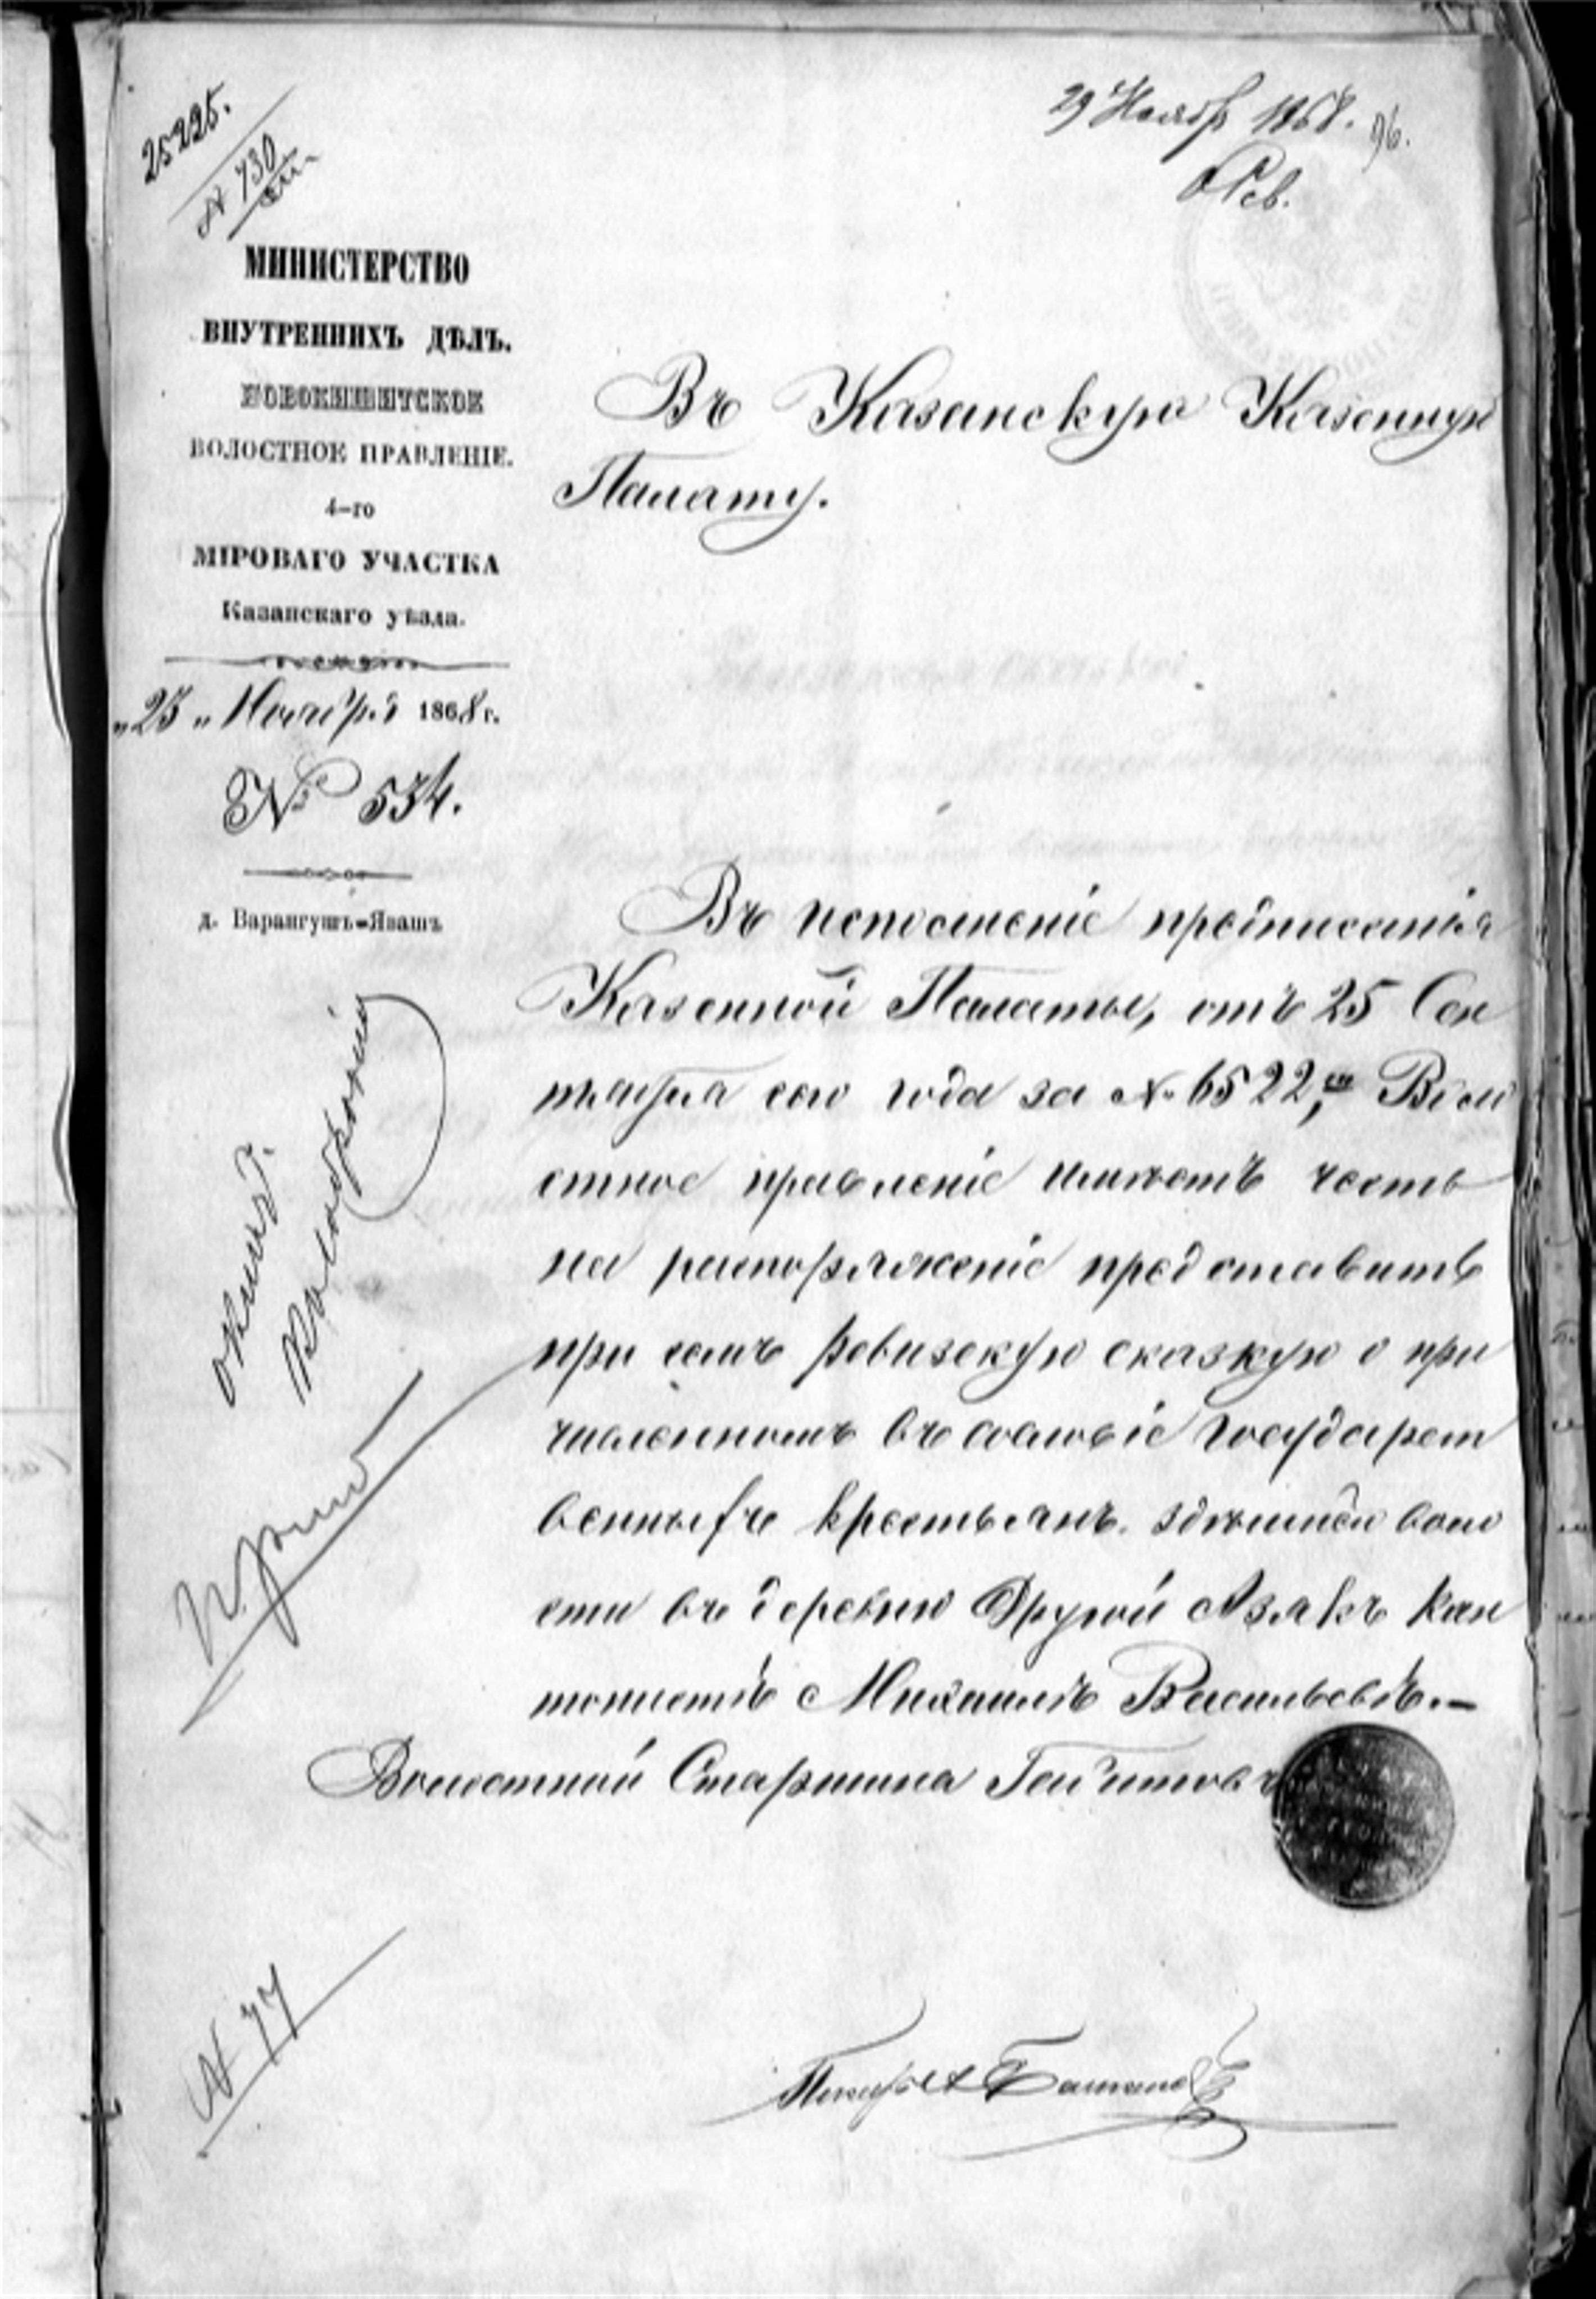 25225.
№ 730
29 Ноябр 1868. 96.
МИНИСТЕРСТВО
ВНУТРЕННИХЪ ДѢЛЪ.
НОВОКИШИТСКОЕ
ВОЛОСТНОЕ ПРАВЛЕНІЕ.
4-го
МІРОВАГО УЧАСТКА
Казанскаго уѣзда.
„23„ Ноября 1868 г.
№ 534.
д. Варангушъ-Явашъ
Въ Казанскую Казенную
Палату.
Въ исполненіе предписанія
Казенной Палаты, отъ 25 Сен
тября сего года за № 6522, Воло
стное правленіе имѣетъ честь
на распоряженіе представить
при семъ ревизскую сказкую о при
численномъ въ сословіе государст
венныхъ крестьянъ здѣшней воло
сти въ деревню Другой Азякъ кан
тонистѣ Михаилѣ Васильевѣ.—
Волостной Старшина
№ 77
Писарь